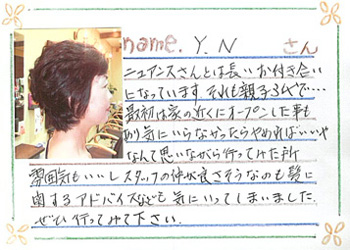 name. Y. N さん
ニュアンスさんとは長いお付き合い
になっています。それも親子3代で…
最初は家の近くにオープンした事も
あり気にいらなかったらやめればいいや
なんて思いながら行ってみた所
雰囲気もいいしスタッフの仲が良さそうなのも髪に
関するアドバイスなども気にいってしまいました。
ぜひ行ってみて下さい。